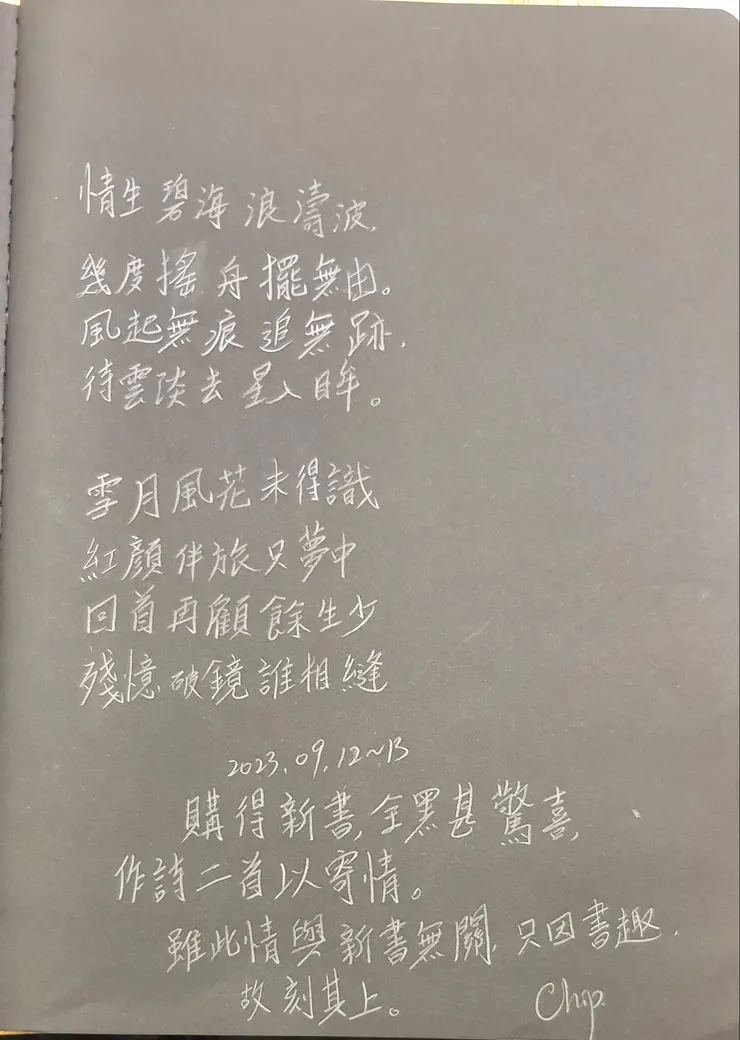 情生碧海浪濤波,
幾度搖舟擺無由。
風起無痕追無跡,
待雲淡去星入目眸。
雪月風花未得識
紅顏伴旅只夢中
回首再顧餘生少
殘憶破鏡誰相縫
2023.09.12~13
購得新書,全黑甚驚喜,
作詩二首以寄情。
雖此情與新書無關,只因書趣,
故刻其上。 Chip.